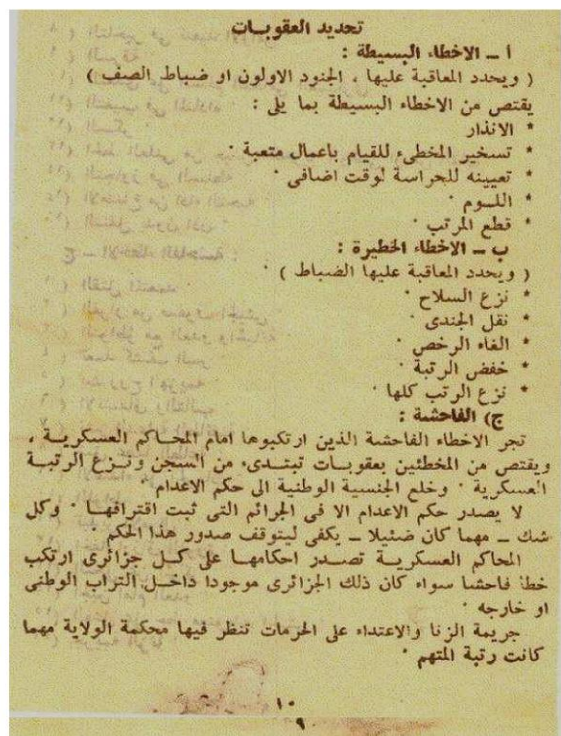 تحديد العقوبات
أ ـ الاخطاء البسيطة :
( ويحدد المعاقبة عليها ، الجنود الاولون او ضباط الصف )
يقتص من الاخطاء البسيطة بما يلى :
* الانذار
* تسخير المخطىء للقيام باعمال متعبة ·
* تعيينه للحراسة لوقت اضافى ·
* اللـوم ·
* قطع المرتب ·
ب ـ الاخطاء الخطيرة :
( ويحدد المعاقبة عليها الضباط ) ·
* نزع السلاح ·
* نقل الجندى ·
* الغاء الرخص ·
* خفض الرتبة ·
* نزع الرتب كلها ·
ج) الفاحشة :
تجر الاخطاء الفاحشة الذين ارتكبوها امام المحاكم العسكريـة ،
ويقتص من المخطئين بعقوبات تبتدىء من السجن ونـزع الرتبـة
العسكرية · وخلع الجنسية الوطنية الى حكم الاعدام ·
لا يصدر حكم الاعدام الا فى الجرائم التى ثبت اقترافهـا · وكل
شك ـ مهما كان ضئيلا ـ يكفى ليتوقف صدور هذا الحكم ·
المحاكم العسكريـة تصـدر احكامهـا على كـل جزائرى ارتكب
خطأ فاحشا سواء كان ذلك الجزائرى موجودا داخـل التراب الوطنى
او خارجه ·
جريمة الزنا والاعتداء على الحرمات تنظر فيها محكمة الولاية مهما
كانت رتبة المتهم ·
١٠
٩